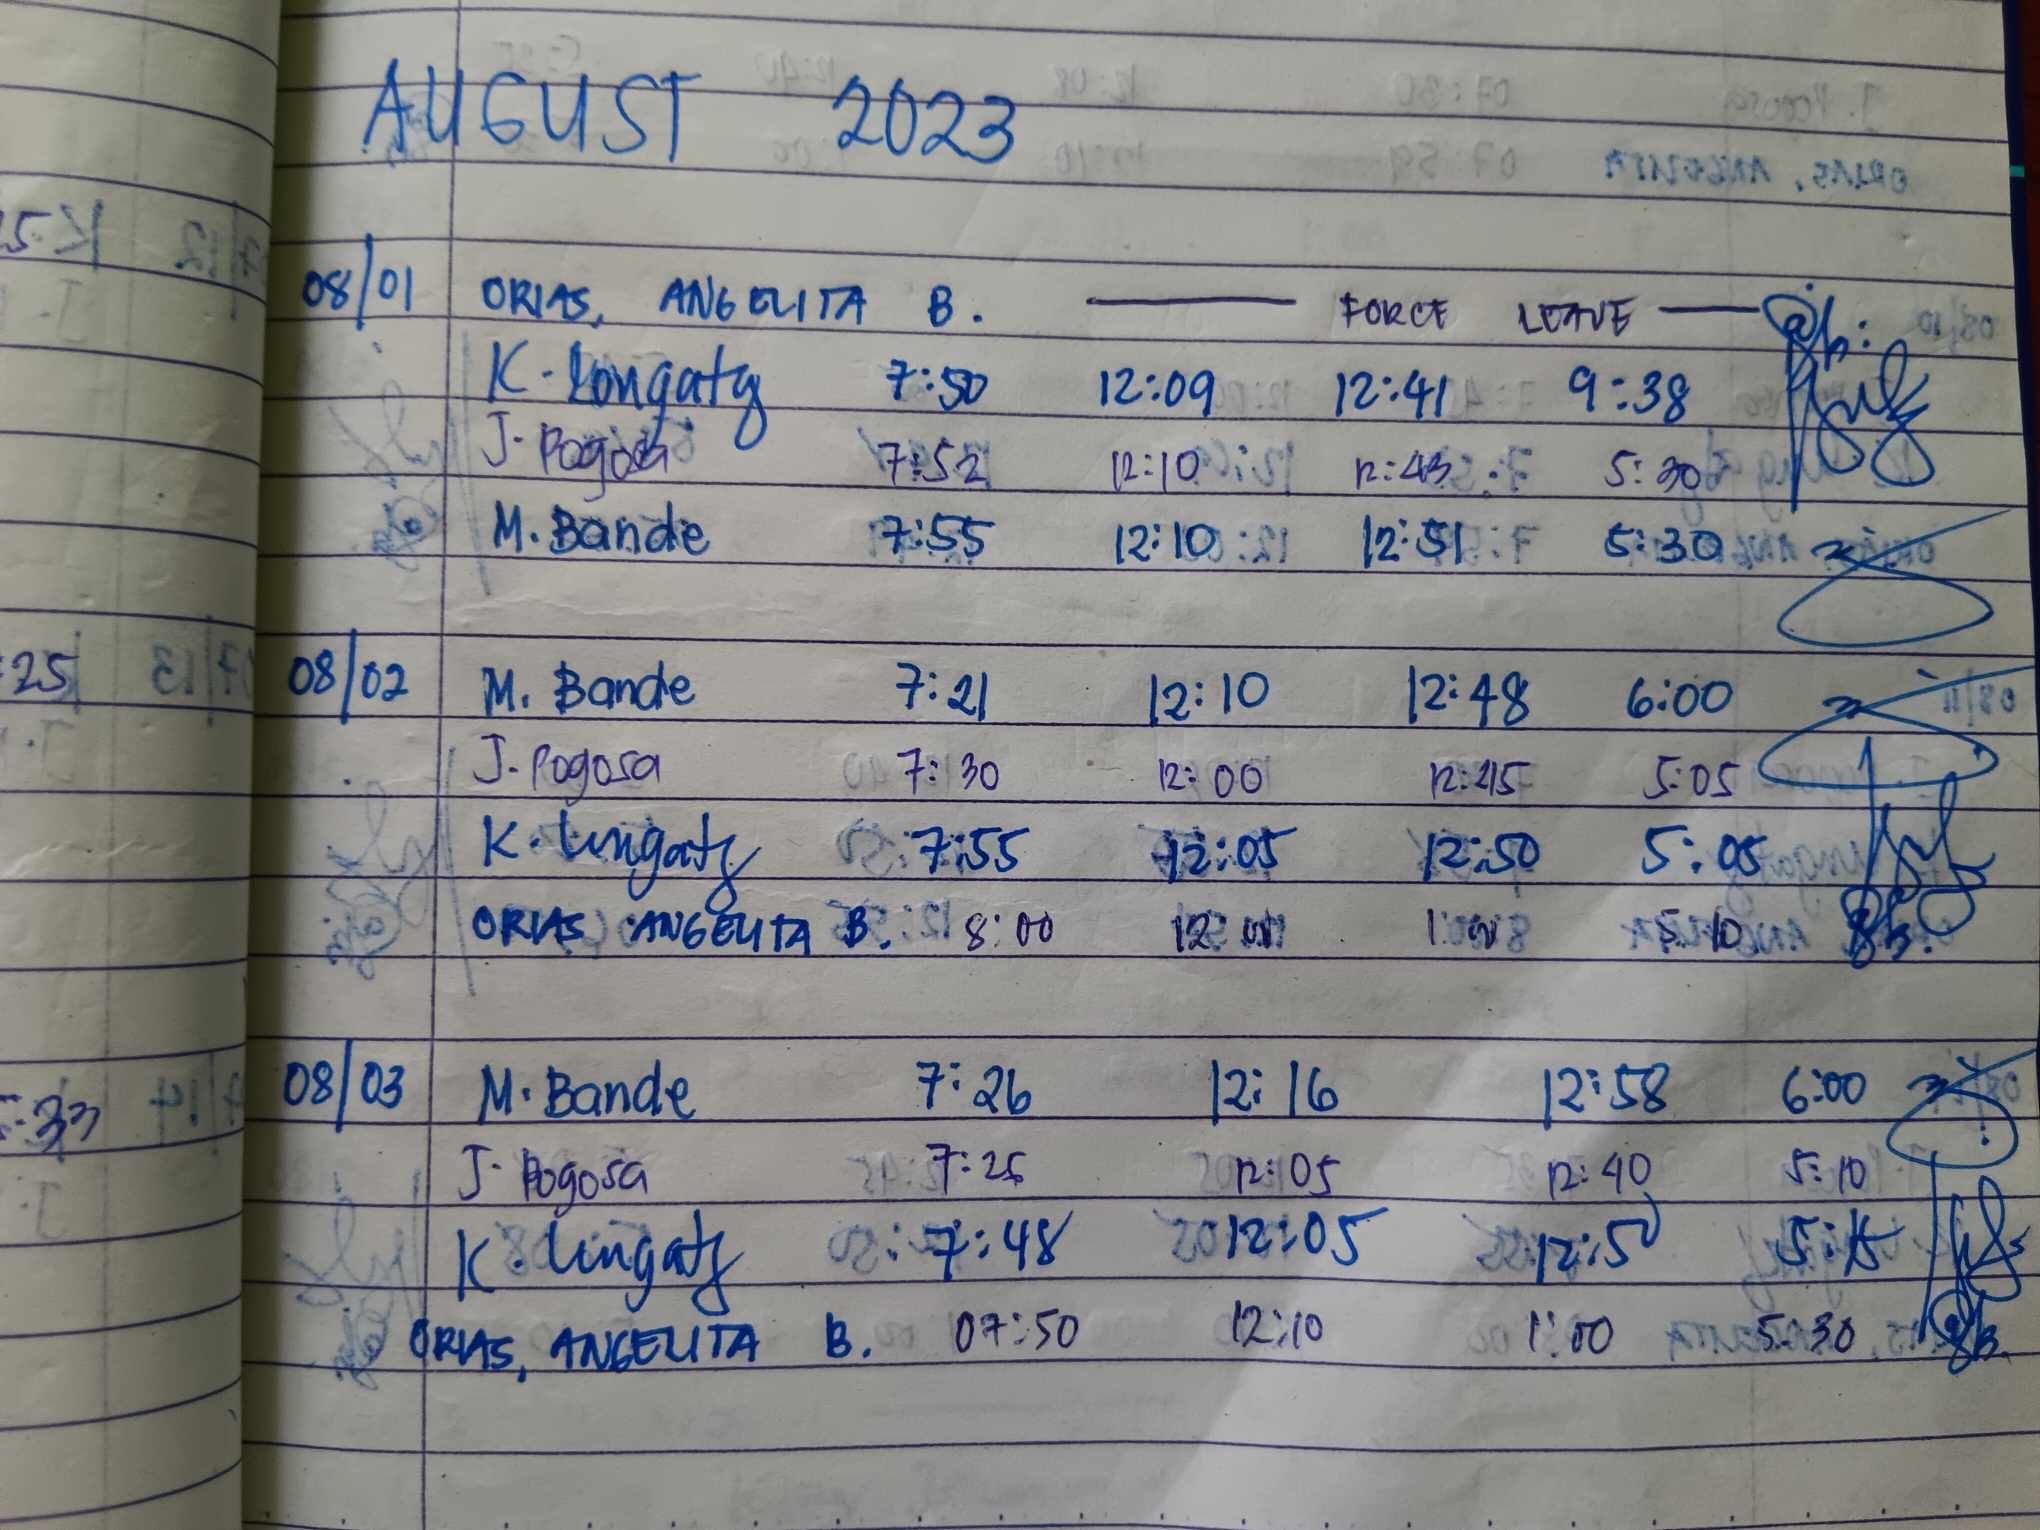 AUGUST 2023
08/01 ORIAS, ANGELITA B. FORCE LEAVE
K. Longatz 7:50 12:09 12:41 9:38
J. Pogosa 7:52 12:10 12:43 5:30
M. Bande 7:55 12:10 12:51 5:30
08/02 M. Bande 7:21 12:10 12:48 6:00
J. Pogosa 7:30 12:00 12:45 5:05
K. Longatz 7:55 12:05 12:50 5:05
ORIAS ANGELITA B. 8:00 12:01 1:00 5:10
08/03 M. Bande 7:26 12:16 12:58 6:00
J. Pogosa 7:25 12:05 12:40 5:10
K. Longatz 7:48 12:05 12:50 5:15
ORIAS, ANGELITA B. 07:50 12:10 1:00 5:30